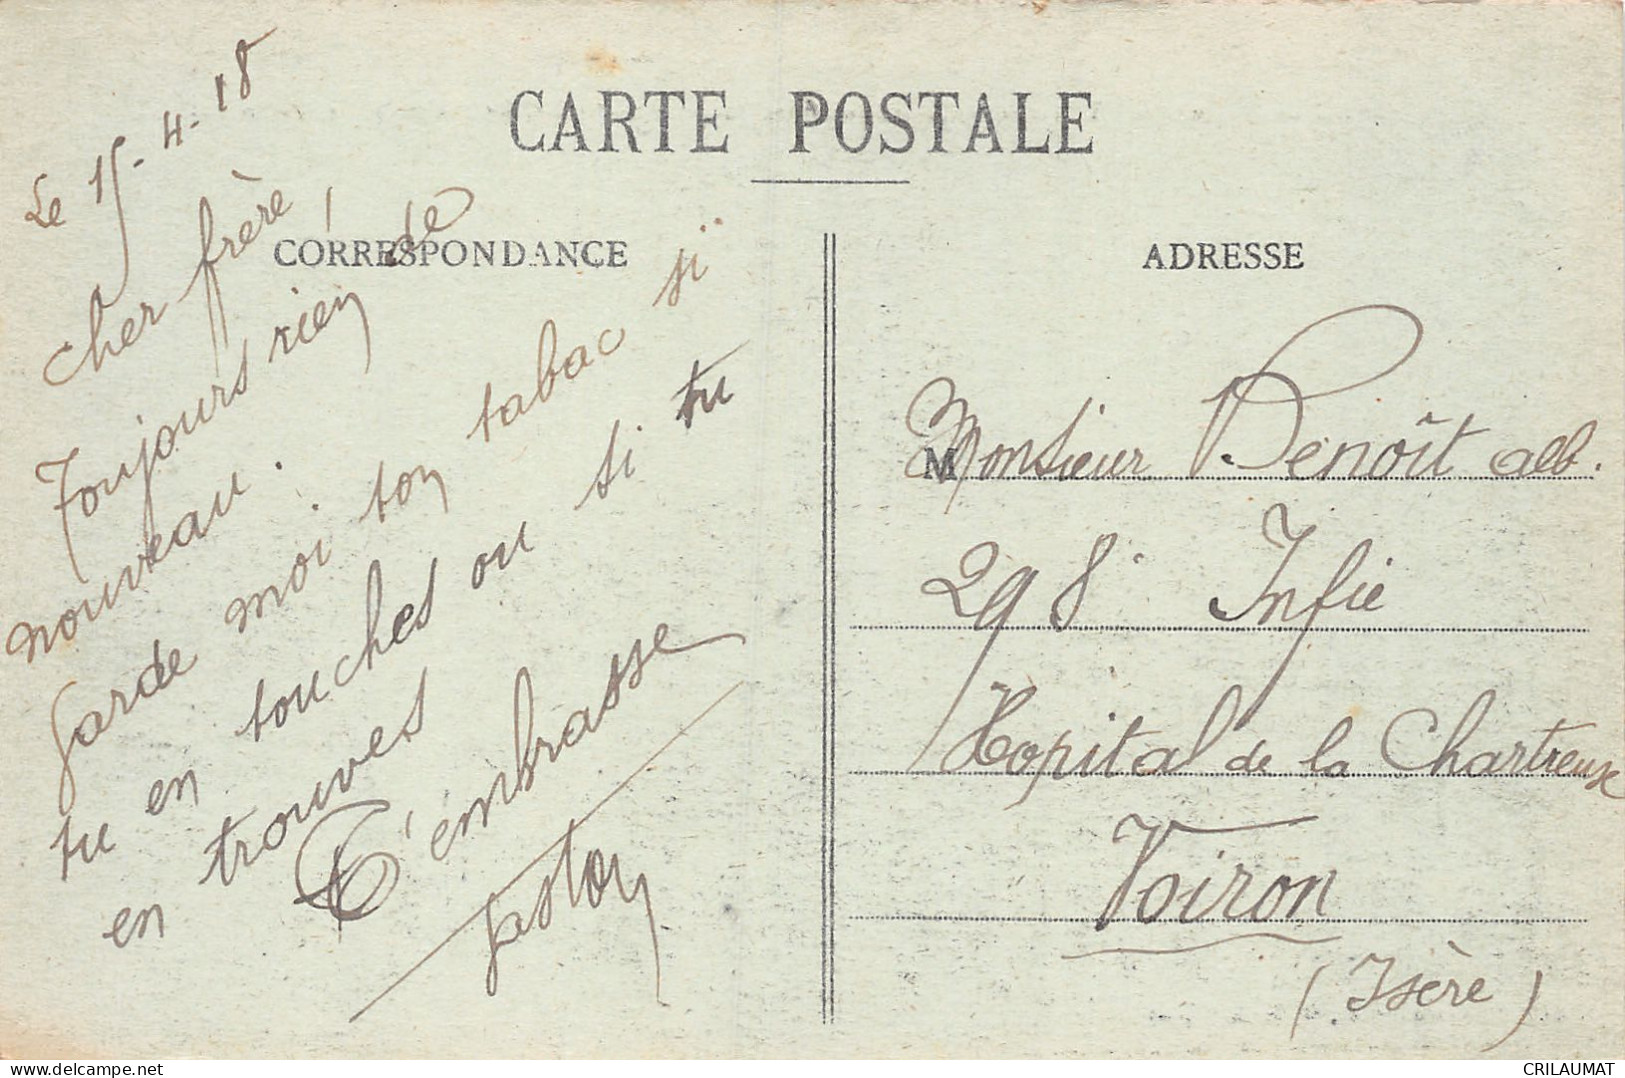 CARTE POSTALE
CORRESPONDANCE
ADRESSE
Le 15-4-18
Cher frère,
Toujours rien de
nouveau.
Garde moi ton tabac si
tu en touches ou si tu
en trouves
T'embrasse
Gaston
M
Monsieur Benoît alb.
298e Infie
Hopital de la Chartreuse
Voiron
(Isère)
delcampe.net
CRILAUMAT